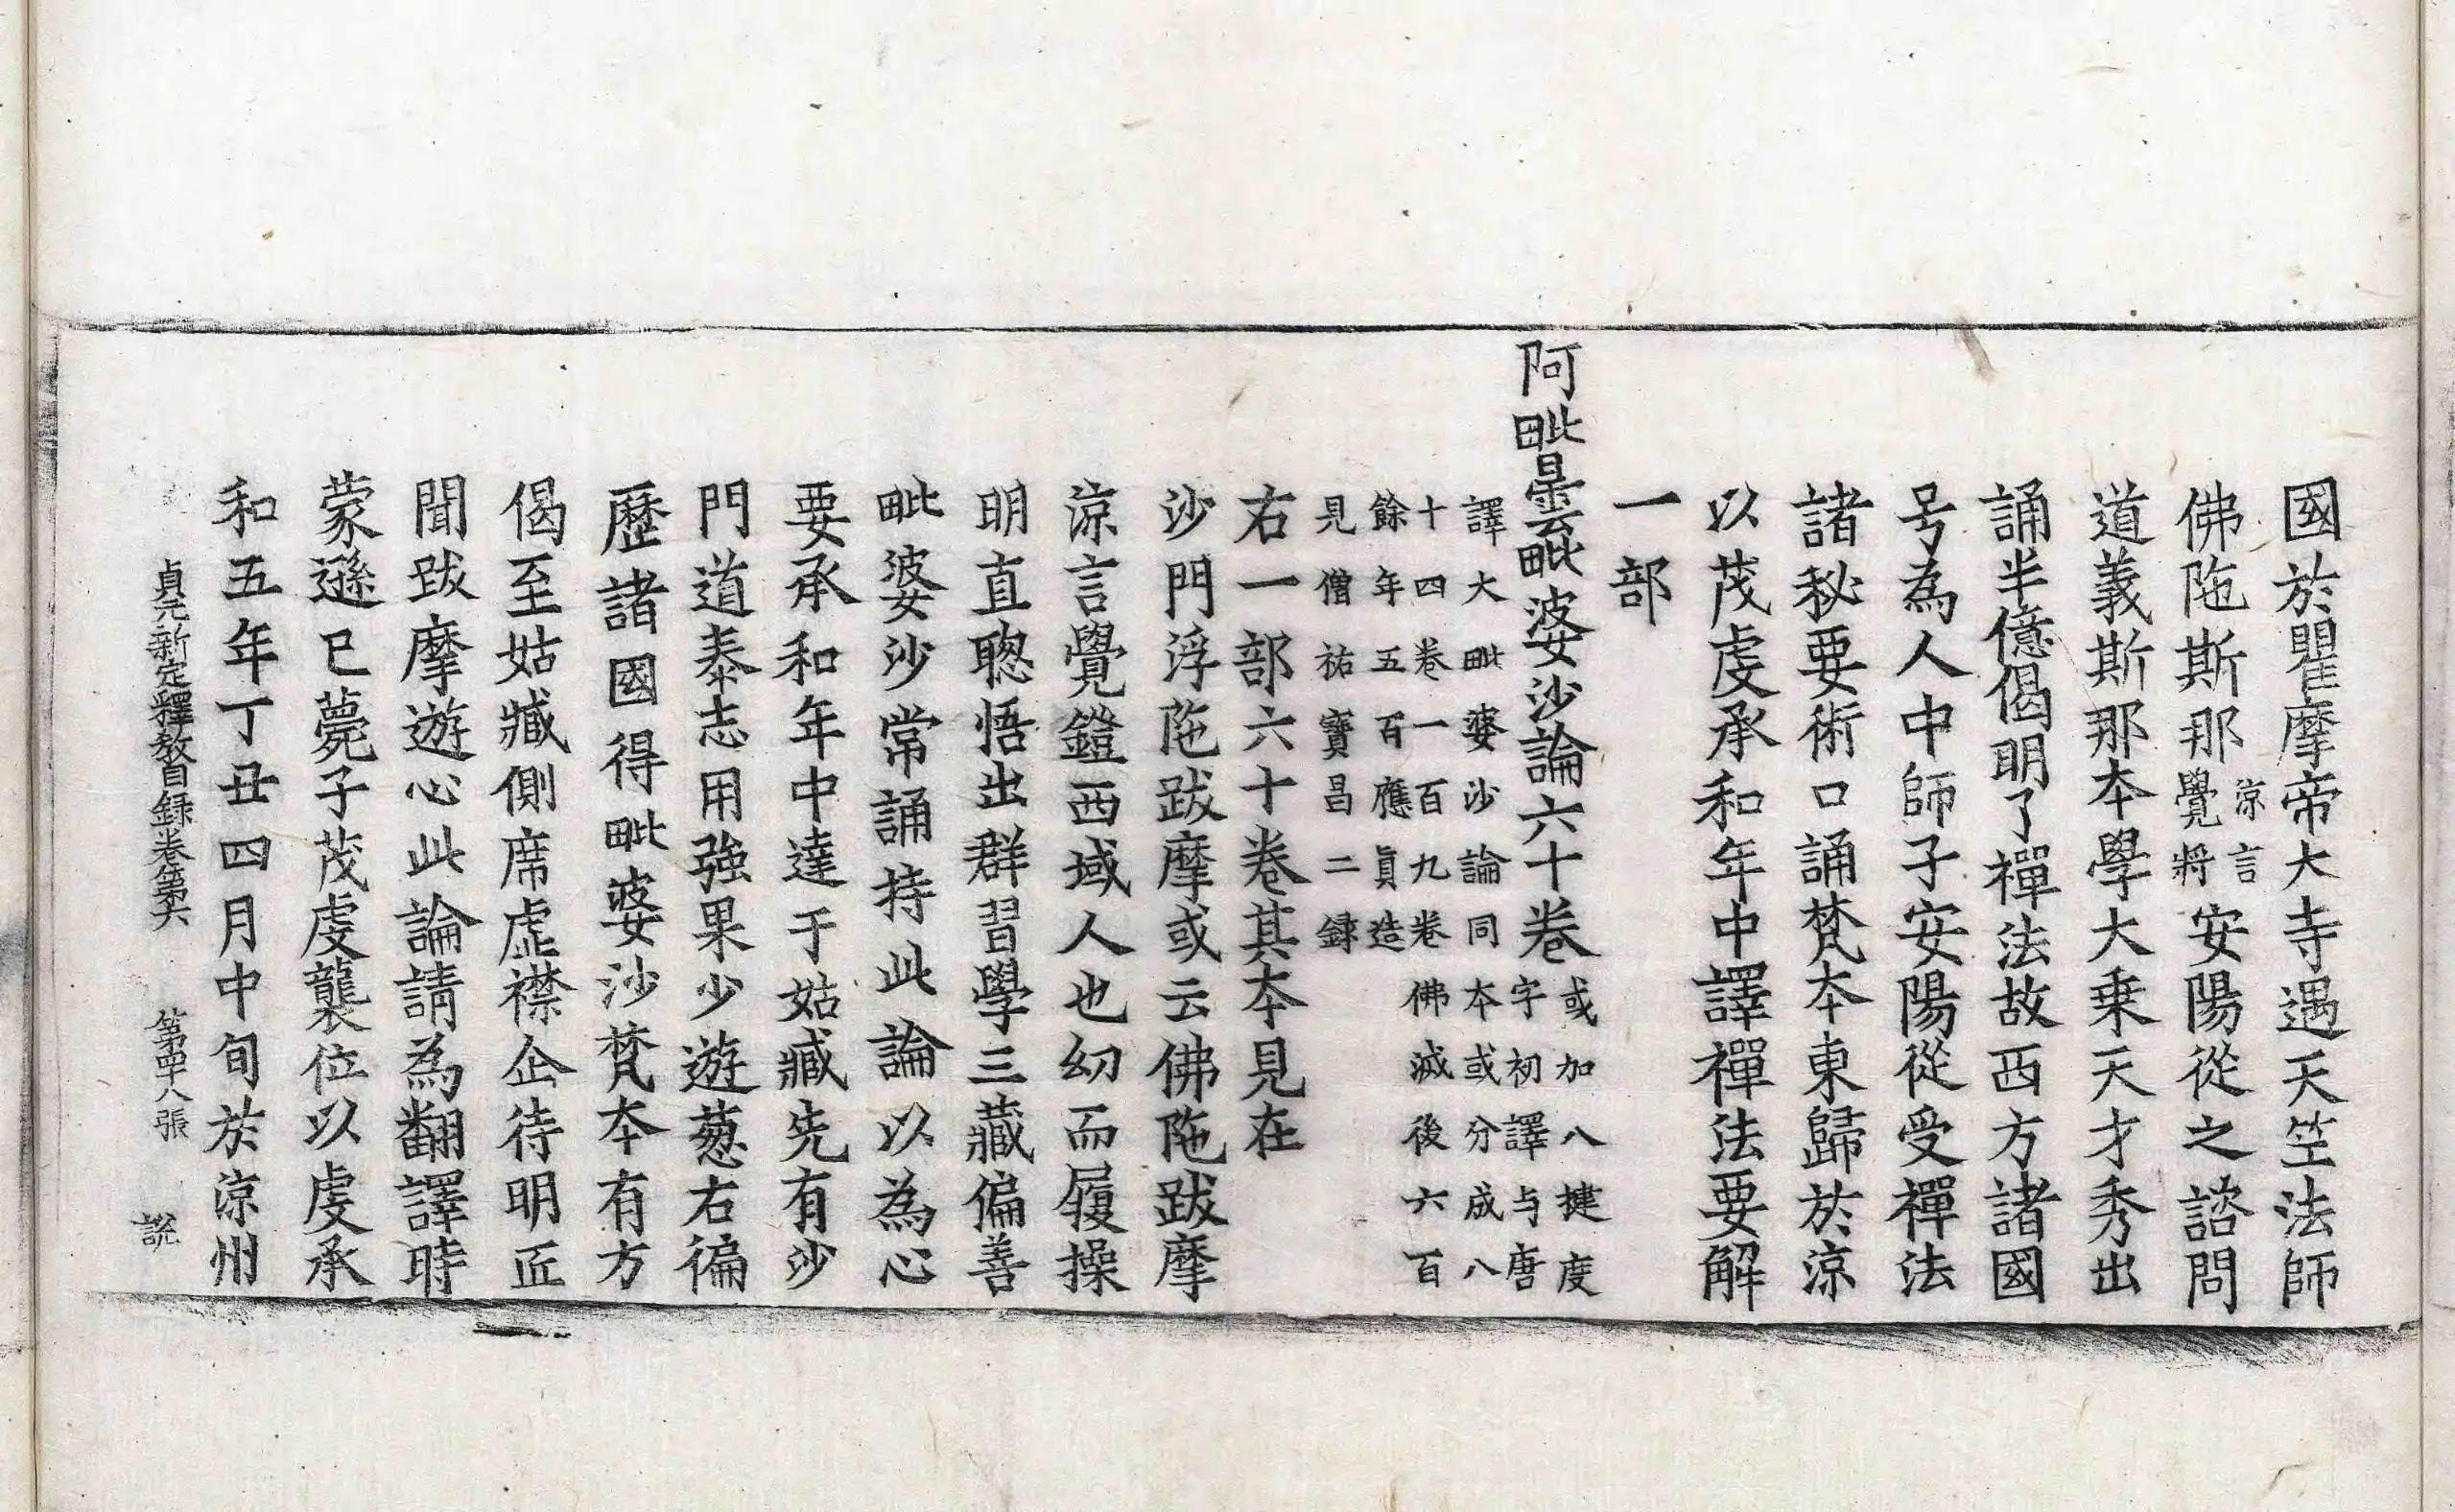 國於瞿摩帝大寺遇天竺法師
佛陁斯那涼言覺將安陽從之諮問
道義斯那本學大乗天才秀出
誦半億偈明了禪法故西方諸國
号為人中師子安陽從受禪法
諸秘要術口誦梵本東歸於涼
以茂虔承和年中譯禪法要解
一部
阿毗曇毗婆沙論六十卷或加八揵度
字初譯与唐
譯大毗婆沙論同本或分成八
十四卷一百九卷佛滅後六百
餘年五百應真造
見僧祐寶昌二錄
右一部六十卷其本見在
沙門浮陁跋摩或云佛陁跋摩
涼言覺鎧西域人也幼而履操
明直聰悟出群習學三藏偏善
毗婆沙常誦持此論以為心
要承和年中達于姑臧先有沙
門道泰志用強果少遊葱右徧
歷諸國得毗婆沙梵本有方
偈至姑臧側席虛襟企待明匠
聞跋摩遊心此論請為翻譯時
蒙遜已薨子茂虔襲位以虔承
和五年丁丑四月中旬於涼州
貞元新定釋教目録卷第六 第四十八張 說